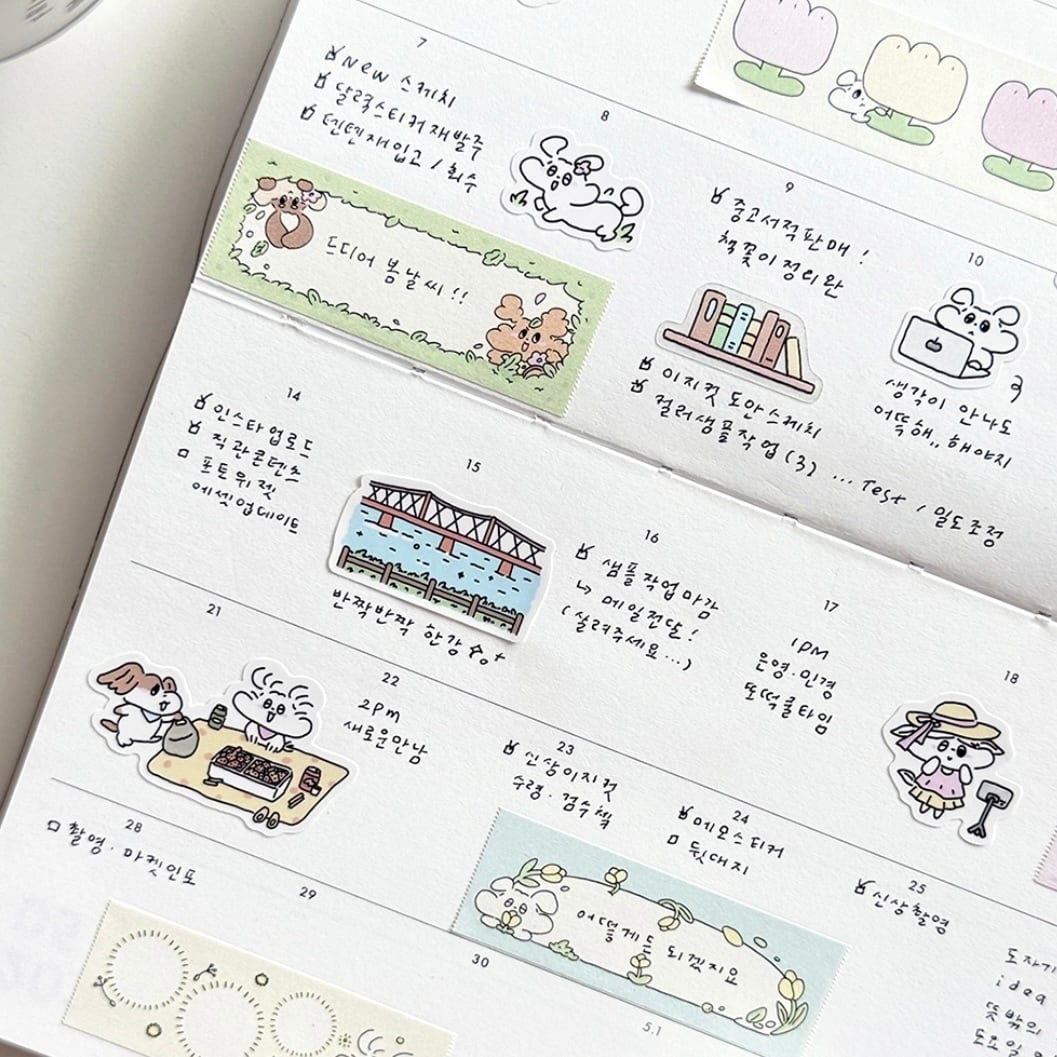 7
New 스케치
달력스티커재발주
텐텐재입고 / 회수
8
드디어 봄날씨!!
9
중고서적판매!
책꽂이정리완
이지컷 도안스케치
컬러샘플작업(3) ... Test / 밀도조정
10
생각이 안나도
어뜩해,, 해야지
14
인스타업로드
직관콘텐츠
포토위젯
에셋업데이트
15
반짝반짝 한강
16
샘플작업마감
↳ 메일전달!
(살려주세요...)
17
1PM
은영.민경
또떡클타임
18
21
22
2pm
새로운만남
23
신상이지컷
수령.검수책
24
메모스티커
뒷대지
25
신상촬영
어떻게든 되겠지요
28
촬영.마켓인포
29
30
5.1
idea
뜻밖의